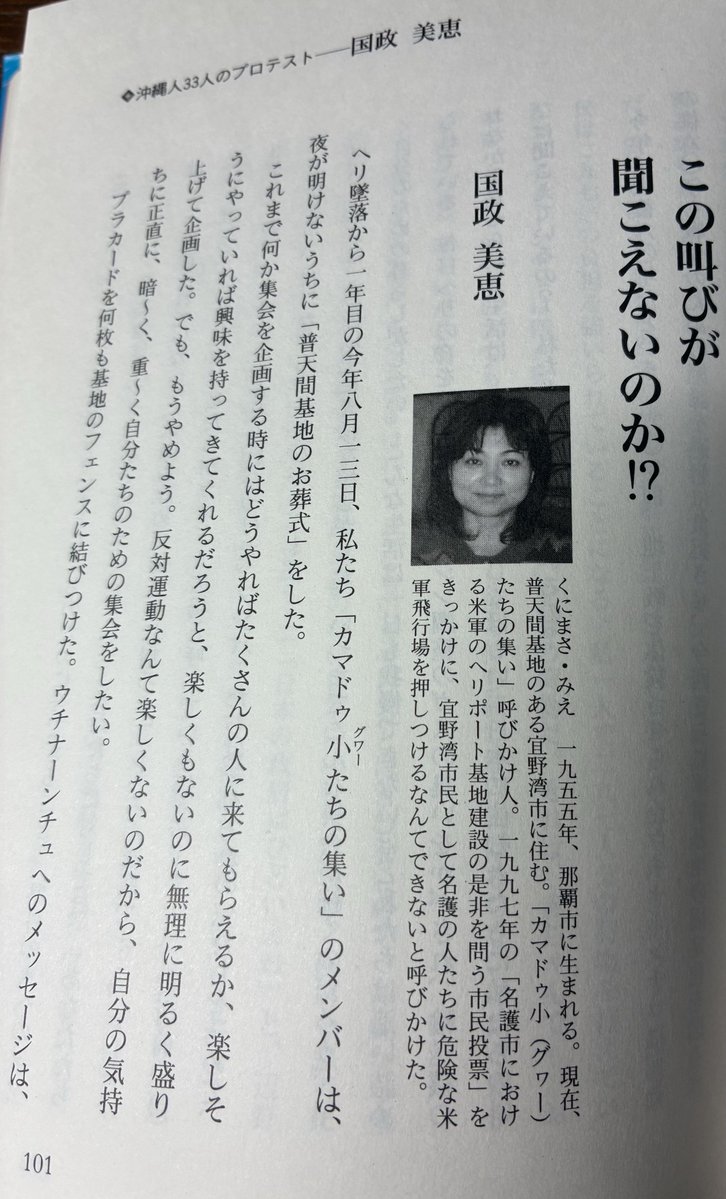 ◆沖縄人33人のプロテスト──国政 美恵
この叫びが
聞こえないのか!?
国政 美恵
くにまさ・みえ　一九五五年、那覇市に生まれる。現在、
普天間基地のある宜野湾市に住む。「カマドゥ小（グヮー）
たちの集い」呼びかけ人。一九九七年の「名護市におけ
る米軍のヘリポート基地建設の是非を問う市民投票」を
きっかけに、宜野湾市民として名護の人たちに危険な米
軍飛行場を押しつけるなんてできないと呼びかけた。
ヘリ墜落から一年目の今年八月一三日、私たち「カマドゥ小グヮーたちの集い」のメンバーは、
夜が明けないうちに「普天間基地のお葬式」をした。
これまで何か集会を企画する時にはどうやればたくさんの人に来てもらえるか、楽しそ
うにやっていれば興味を持ってきてくれるだろうと、楽しくもないのに無理に明るく盛り
上げて企画した。でも、もうやめよう。反対運動なんて楽しくないのだから、自分の気持
ちに正直に、暗〜く、重〜く自分たちのための集会をしたい。
プラカードを何枚も基地のフェンスに結びつけた。ウチナーンチュへのメッセージは、
101